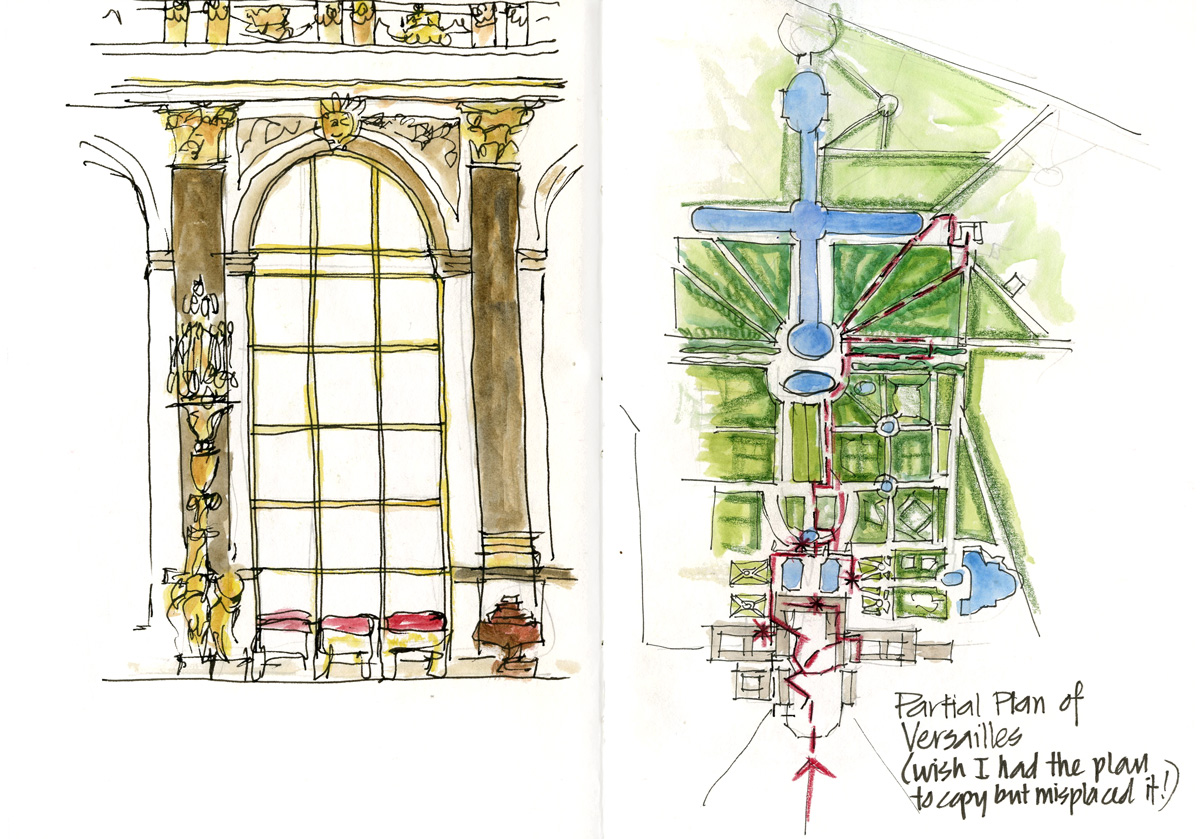 Partial Plan of
Versailles
(wish I had the plan
to copy but misplaced it!)